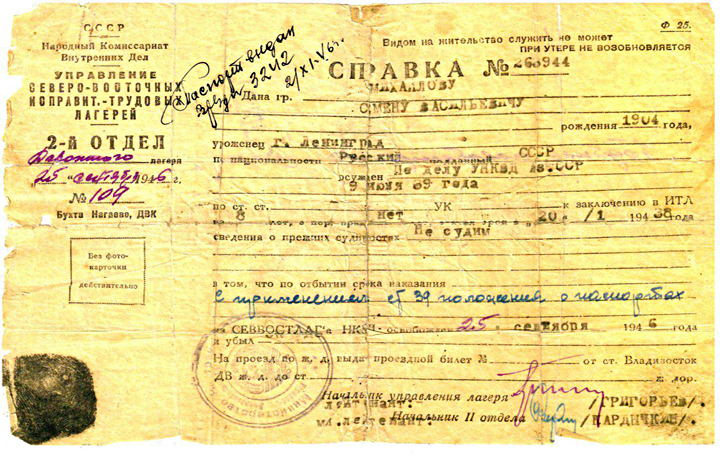 СССР
Народный Комиссариат
Внутренних Дел
УПРАВЛЕНИЕ
СЕВЕРО-ВОСТОЧНЫХ
ИСПРАВИТ.-ТРУДОВЫХ
ЛАГЕРЕЙ
2-й ОТДЕЛ
лагеря
"25" сентября 1946 г.
№ 109
Бухта Нагаево, ДВК
Без фото-
карточки
действительно
Паспорт выдан
3242
2/XI-
Ф 25.
Видом на жительство служить не может
ПРИ УТЕРЕ НЕ ВОЗОБНОВЛЯЕТСЯ
СПРАВКА № 263944
Дана гр. МИХАЙЛОВУ
СЕМЕНУ ВАСИЛЬЕВИЧУ
рождения 1904 года,
уроженец г. Ленинград
по национальности Русский подданный СССР
осужден По делу УНКВД СССР
9 июня 39 года
по ст. ст. УК к заключению в ИТЛ
на 8 лет, с нет срока с "20" /1 1938 года
сведения о прежних судимостях Не судим
в том, что по отбытии срока наказания
с применением ст 39 положения о паспортах
из СЕВВОСТЛАГ'а НКВД освобожден 25. сентября 1946 года
и убыл
На проезд по ж. д. выдан проездной билет № от ст. Владивосток
ДВ ж. д. до ст. ж дор.
Начальник управления лагеря
лейтенант: /ГРИГОРЬЕВ/.
Начальник II отдела
мл. лейтенант: /КАРДИЧКИН/.